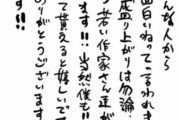 んな人から
面白いねって言われま
盛り上がりは勿論、
若い作家さん達が
ます!!当然僕も!!
て貰えると嬉しいで
ありがとうございます
す!!